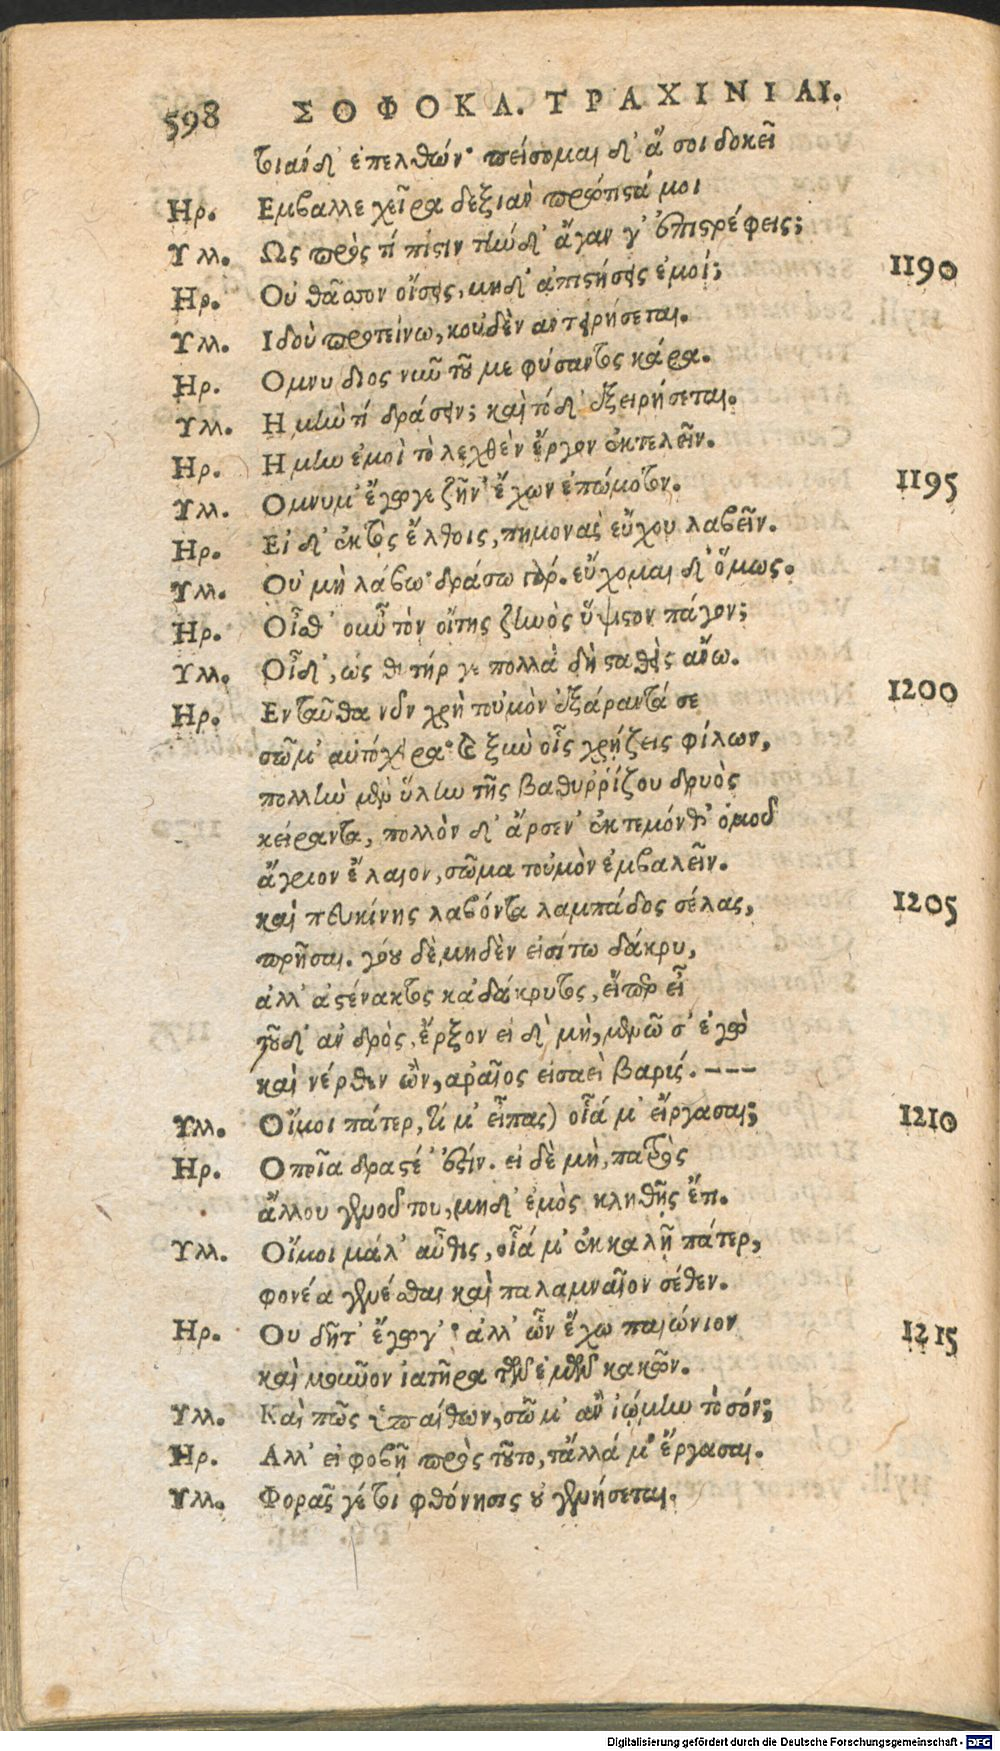 598 ΣΟΦΟΚΛ. ΤΡΑΧΙΝΙΑΙ.
τοιάνδ' ἐπελθών· πείσομαι δ' ἅ σοι δοκεῖ
Ηρ. Εμβαλλε χεῖρα δεξιὰν πρώτιστά μοι
Υλλ. Ως πρὸς τί πίστιν τήνδ' ἄγαν γ' ἐπιστρέφεις;
Ηρ. Οὐ θᾶσσον οἴσεις, μηδ' ἀπιστήσεις ἐμοί; 1190
Υλλ. Ιδοὺ προτείνω, κοὐδὲν ἀντειρήσεται.
Ηρ. Ομνυ διὸς νῦν τοῦ με φύσαντος κάρα.
Υλλ. Η μὴν τί δράσειν; καὶ τόδ' ἐξειρήσεται.
Ηρ. Η μὴν ἐμοὶ τὸ λεχθὲν ἔργον ἐκτελεῖν.
Υλλ. Ομνυμ' ἔγωγε ζῆν' ἔχων ἐπώμοτον. 1195
Ηρ. Εἰ δ' ἐκτὸς ἔλθοις, πημονὰς εὔχου λαβεῖν.
Υλλ. Οὐ μὴ λάβω· δράσω γάρ. εὔχομαι δ' ὅμως.
Ηρ. Οἶσθ' οὖν τὸν οἴτης ζηνὸς ὕψιστον πάγον;
Υλλ. Οἶδ', ὡς θυτήρ γε πολλὰ δὴ σταθεὶς ἄνω.
Ηρ. Ενταῦθα νυν χρὴ τοὐμὸν ἐξάραντά σε 1200
σῶμ' αὐτόχειρα· καὶ ξὺν οἷς χρῄζεις φίλων,
πολλὴν μὲν ὕλην τῆς βαθυῤῥίζου δρυὸς
κείραντα, πολλὸν δ' ἄρσεν' ἐκτεμόνθ' ὁμοῦ
ἄγριον ἔλαιον, σῶμα τοὐμὸν ἐμβαλεῖν.
καὶ πευκίνης λαβόντα λαμπάδος σέλας, 1205
πρῆσαι. γόου δὲ μηδὲν εἰσίτω δάκρυ,
ἀλλ' ἀστένακτος κἀδάκρυτος, εἴπερ εἶ
τοῦδ' ἀνδρὸς, ἔρξον εἰ δὲ μὴ, μενῶ σ' ἐγὼ
καὶ νέρθεν ὢν, ἀραῖος εἰσαεὶ βαρύς. ---
Υλλ. Οἴμοι πάτερ, τί μ' εἶπας) οἷά μ' εἴργασαι; 1210
Ηρ. Οποῖα δραστέ' ἐστίν. εἰ δὲ μὴ, πατρὸς
ἄλλου γενοῦ του, μηδ' ἐμὸς κληθῇς ἔτι.
Υλλ. Οἴμοι μάλ' αὖθις, οἷά μ' ἐκκαλῇ πάτερ,
φονέα γενέσθαι καὶ παλαμναῖον σέθεν.
Ηρ. Ου δῆτ' ἔγωγ'· ἀλλ' ὧν ἔχω παιώνιον 1215
καὶ μοῦνον ἰατῆρα τῶν ἐμῶν κακῶν.
Υλλ. Καὶ πῶς ὑπαίθων, σῶμ' ἂν ἰῴμην τὸ σόν;
Ηρ. Αλλ' εἰ φοβῇ πρὸς τοῦτο, τἄλλά μ' ἔργασαι.
Υλλ. Φορᾶς γέ τοι φθόνησις οὐ γενήσεται.
Digitalisierung gefördert durch die Deutsche Forschungsgemeinschaft - DFG